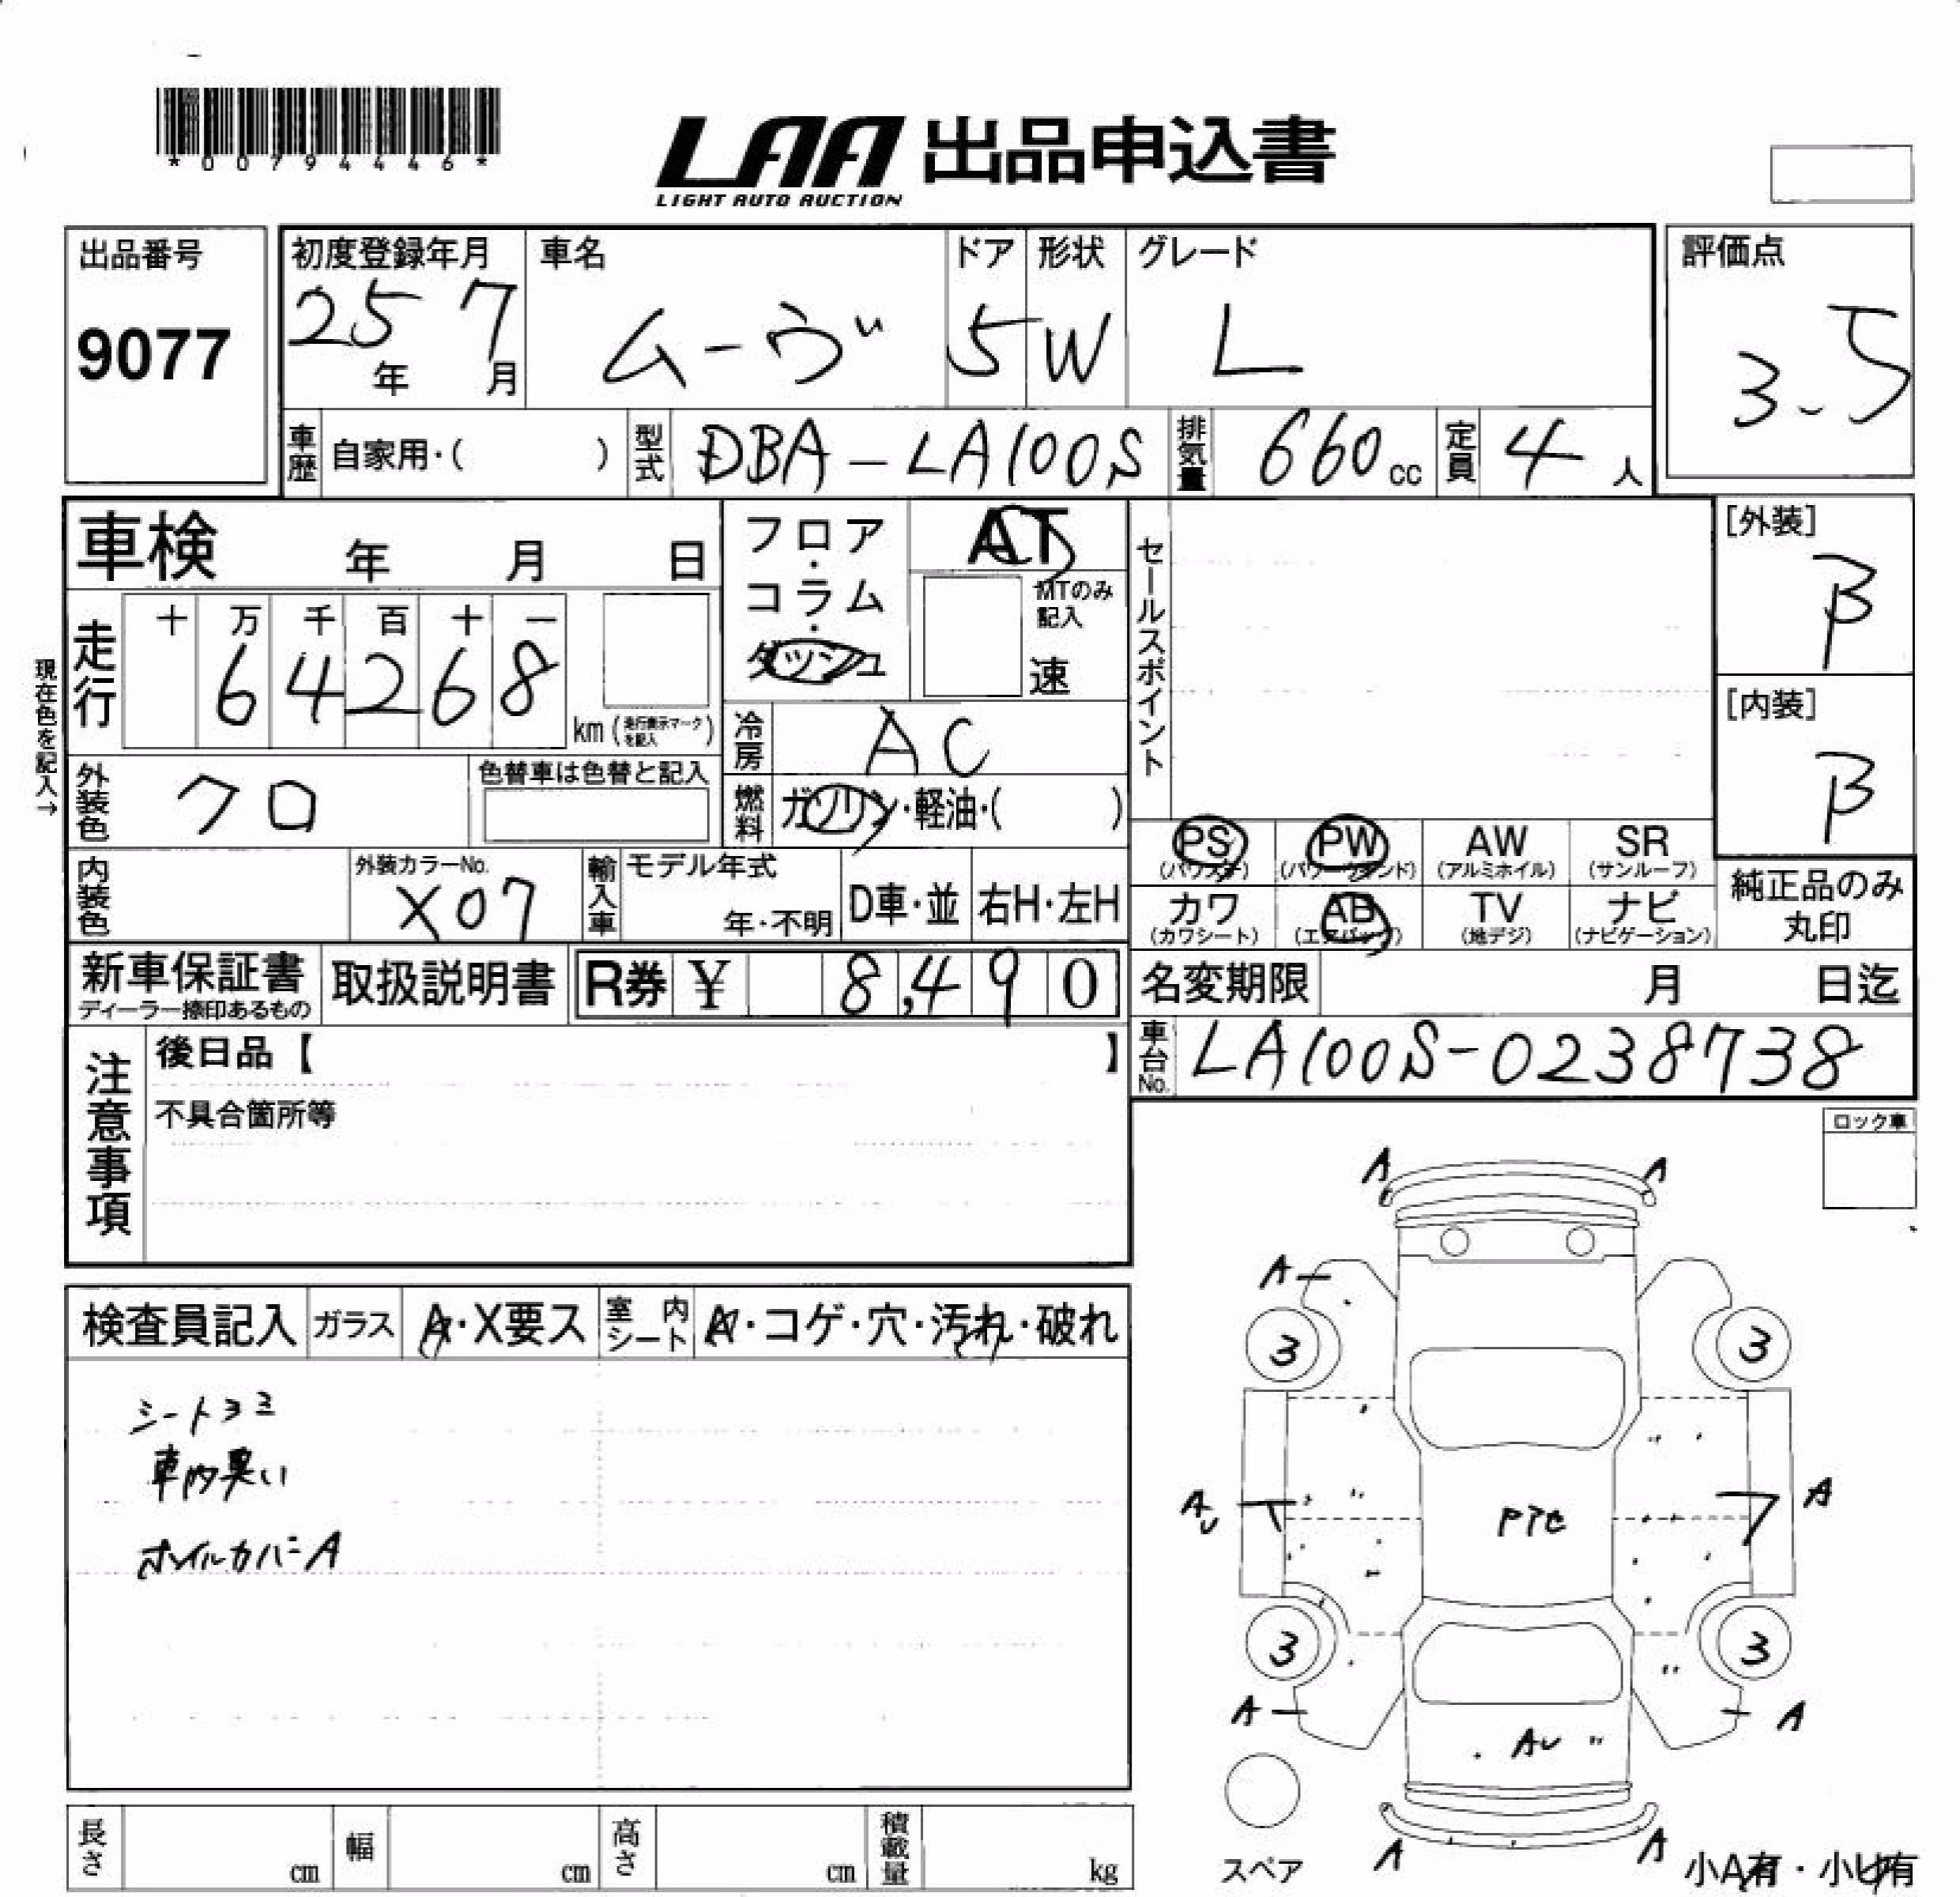 *00794446*
LAA 出品申込書
LIGHT AUTO AUCTION
出品番号
9077
初度登録年月
25年 7月
車名
ムーヴ
ドア
5
形状
W
グレード
L
評価点
3.5
車歴 自家用・( )
型式 DBA-LA100S
排気量 660cc
定員 4人
車検 年 月 日
フロア・コラム・ダッシュ
AT
MTのみ記入
速
セールスポイント
[外装]
B
[内装]
B
現在色を記入→
走行 十 万 千 百 十 一
64268
km (走行表示マークを記入)
冷房 AC
外装色 クロ
色替車は色替と記入
燃料 ガソリン・軽油・( )
PS (パワステ)
PW (パワーウィンド)
AW (アルミホイル)
SR (サンルーフ)
内装色
外装カラーNo.
X07
輸入車
モデル年式
年・不明
D車・並
右H・左H
カワ (カワシート)
AB (エアバッグ)
TV (地デジ)
ナビ (ナビゲーション)
純正品のみ丸印
新車保証書
ディーラー捺印あるもの
取扱説明書
R券 ¥ 8,490
名変期限 月 日迄
車台No. LA100S-0238738
注意事項
後日品【 】
不具合箇所等
ロック車
検査員記入
ガラス A・X要ス
室内シート A・コゲ・穴・汚れ・破れ
シートヨゴ
車内臭い
ホイルカバーA
A A
A
3 3
AU A
3 3
A A
AU
A A
スペア
小A有・小U有
長さ cm
幅 cm
高さ cm
積載量 kg